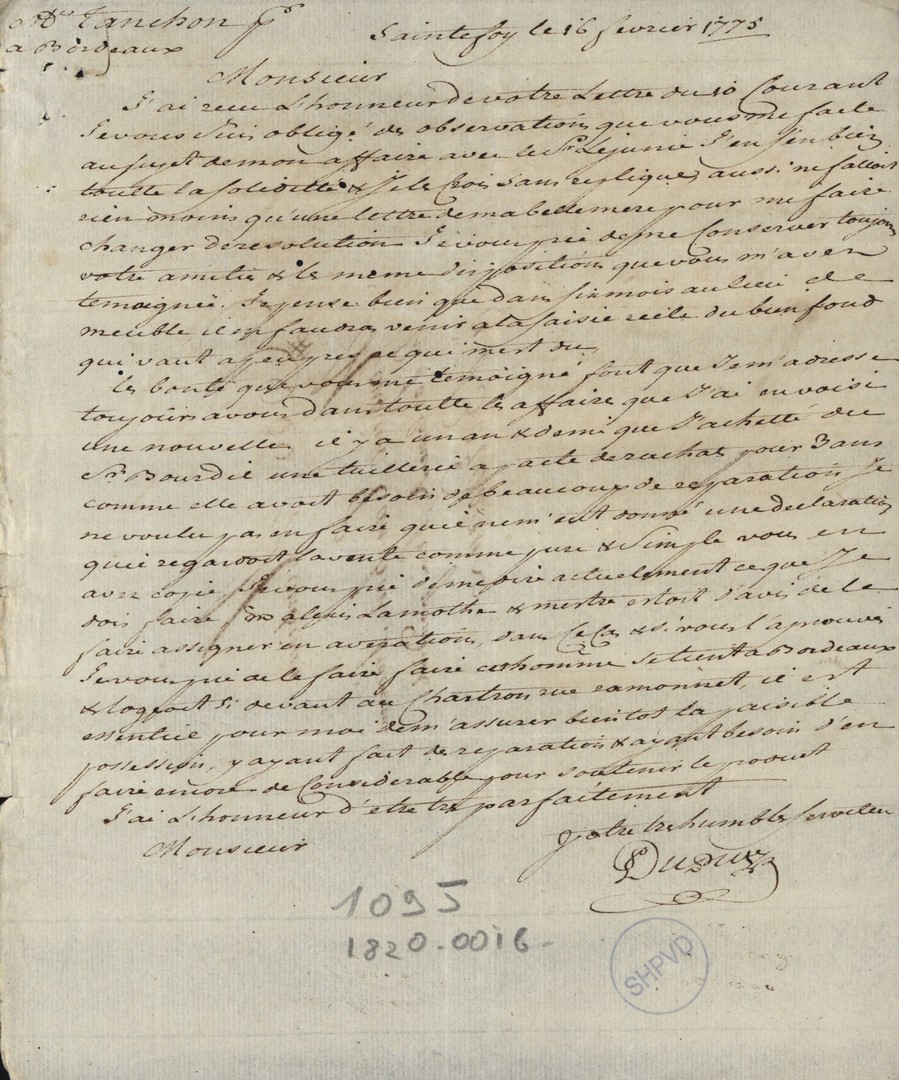 Mr Tanchon pr
a Bordeaux
Saintefoy le 16 fevrier 1775
Monsieur
J'ai recu L'honneur de votre Lettre du 10 Courant
Je vous Suis obligé des observations que vous me faite
au sujet de mon affaire avec le Sr Lejunie J'en sen bien
toutte la solidette & Je le Crois Sans replique, aussi ne falloit
rien moins qu'une lettre de ma bellemere pour me faire
changer de resolution Je vous prie de me Conserver toujours
votre amitié & les meme dispositions que vous m'aver
temoigneé. Je pense bien que dans six mois au lieu de
meuble, il en faudra venir a la saisie reele du bien fond
qui vaut a peu pres ce qui mest du,
les bonté que vous me temoigné font que Je m'adresse
toujours a vous dans toutte les affaire que J'ai en voisi
une nouvelle, il y a un an & demi que J'achetté du
Sr Bourdié une tuillerie a pacte de rachat pour 3 ans
comme elle avoit besoin de beaucoup de reparation Je
ne voulu pas en faire qu'il ne m'eut donné une declaration
qu'il regardoit la vente comme pure & Simple vous en
aver copie, Je vous prie de me dire actuelement ce que Je
dois faire Mr alexis Lamothe & mestre estoit d'avis de le
faire assigner en averation, dans Ce Cas & si vous l'aprouvés
Je vous prie de le faire faire cet homme se tient a Bordeaux
& logeoit Si devant au Chartron rue ramonnet, il est
essentiel pour moi de m'assurer bientot la paisible
possession, y ayant fait de reparation & ayant besoin d'en
faire encore de Considerable pour soutenir le produit
J'ai L'honneur d'etre tre parfaitement
Monsieur
Votre tres humble serviteur
Dupuy
1095
1820-0016-
SHPVD